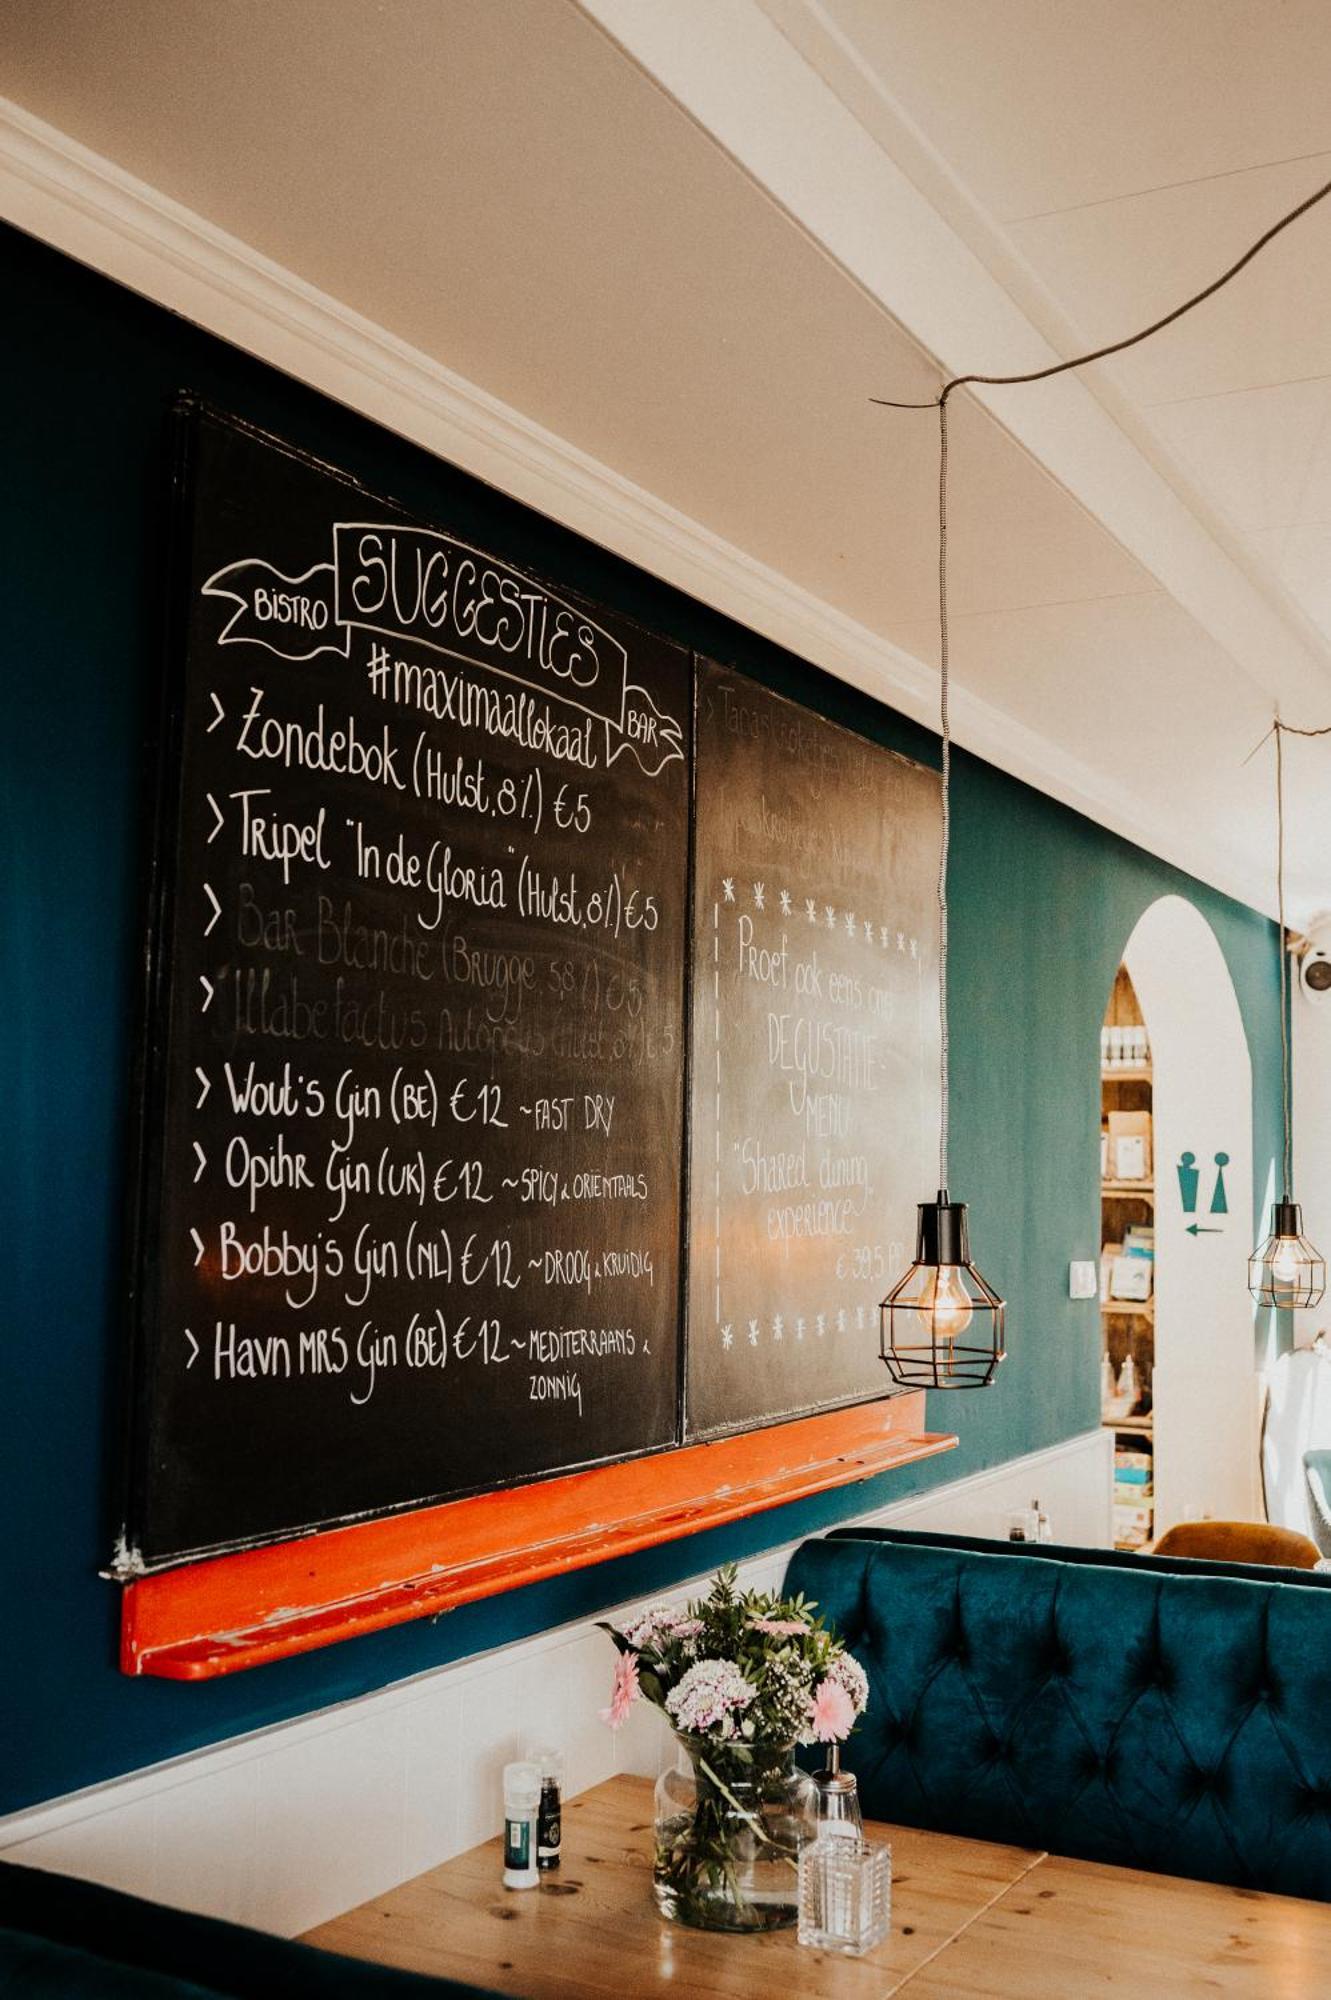 BISTRO SUGGESTIES BAR
#maximaallokaal
> Zondebok (Hulst, 8%) €5
> Tripel "In de Gloria" (Hulst, 8%) €5
> Bar Blanche (Brugge 5,8%) €5
> Labefactus (Hulst, 8%) €5
> Wout's Gin (BE) €12 ~ FAST DRY
> Opihr Gin (UK) €12 ~ SPICY & ORIËNTAALS
> Bobby's Gin (NL) €12 ~ DROOG & KRUIDIG
> Havn MRS Gin (BE) €12 ~ MEDITERRAANS &
ZONNIG
Proef ook eens ons
DEGUSTATIE-
MENU
"Shared dining
experience"
€ 39,5 PP